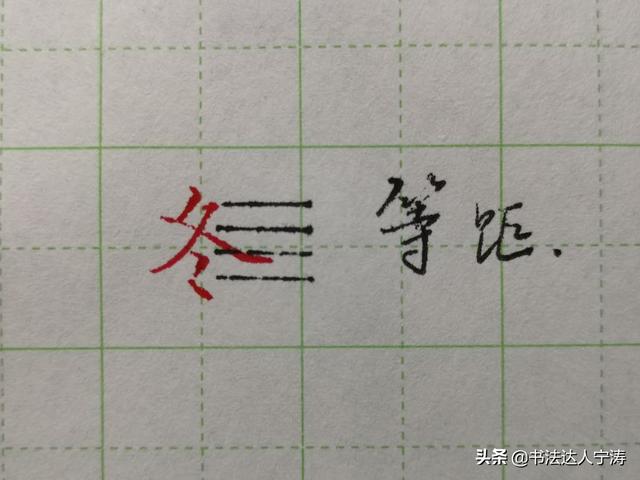 冬 等距.
头条 @书法达人宁涛